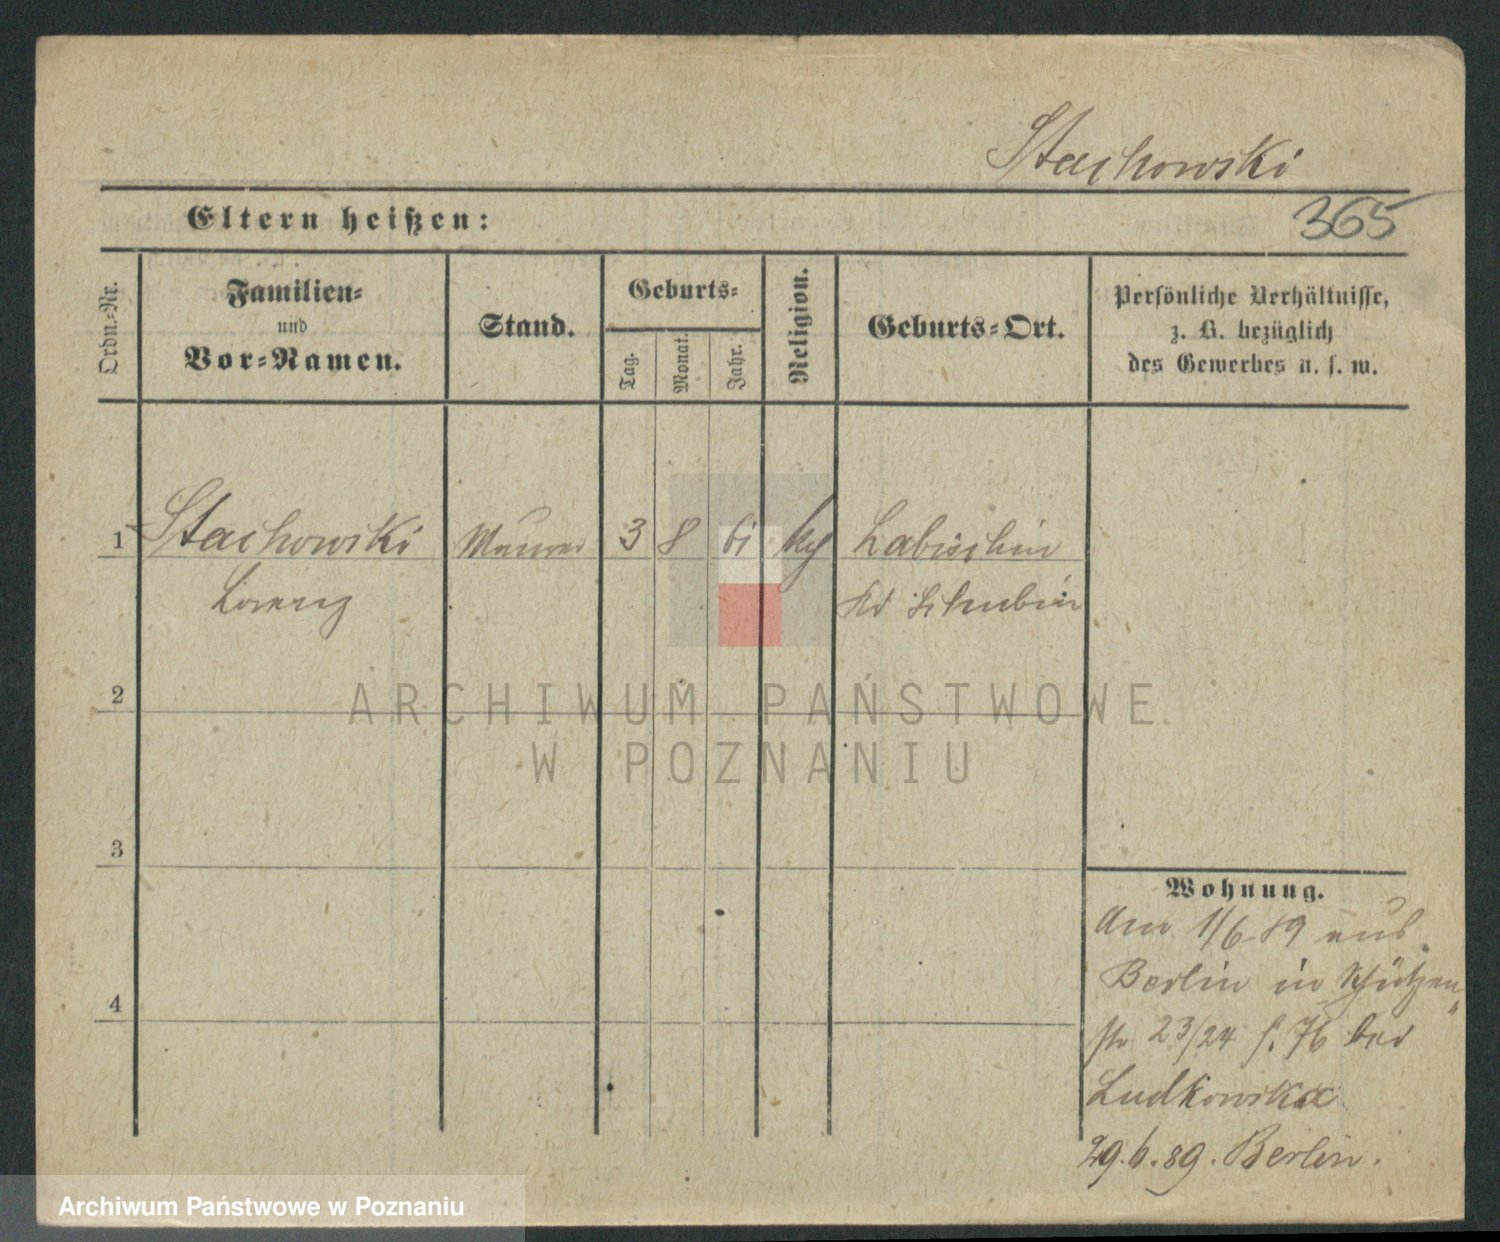 Stachowski
365
Eltern heißen:
Ordn.-Nr.
Familien-
und
Vor-Namen.
Stand.
Geburts-
Tag.
Monat.
Jahr.
Religion.
Geburts-Ort.
Persönliche Verhältnisse,
z. B. bezüglich
des Gewerbes u. s. w.
1 Stachowski Maurer 3 8 61 kg Labischin
Lorenz Kr Schubin
2
3
4
Wohnung.
Am 1/6 89 aus
Berlin in Schützen
str 23/24 f. 76 bei
Ludkowska
29.6.89. Berlin.
ARCHIWUM PAŃSTWOWE
W POZNANIU
Archiwum Państwowe w Poznaniu